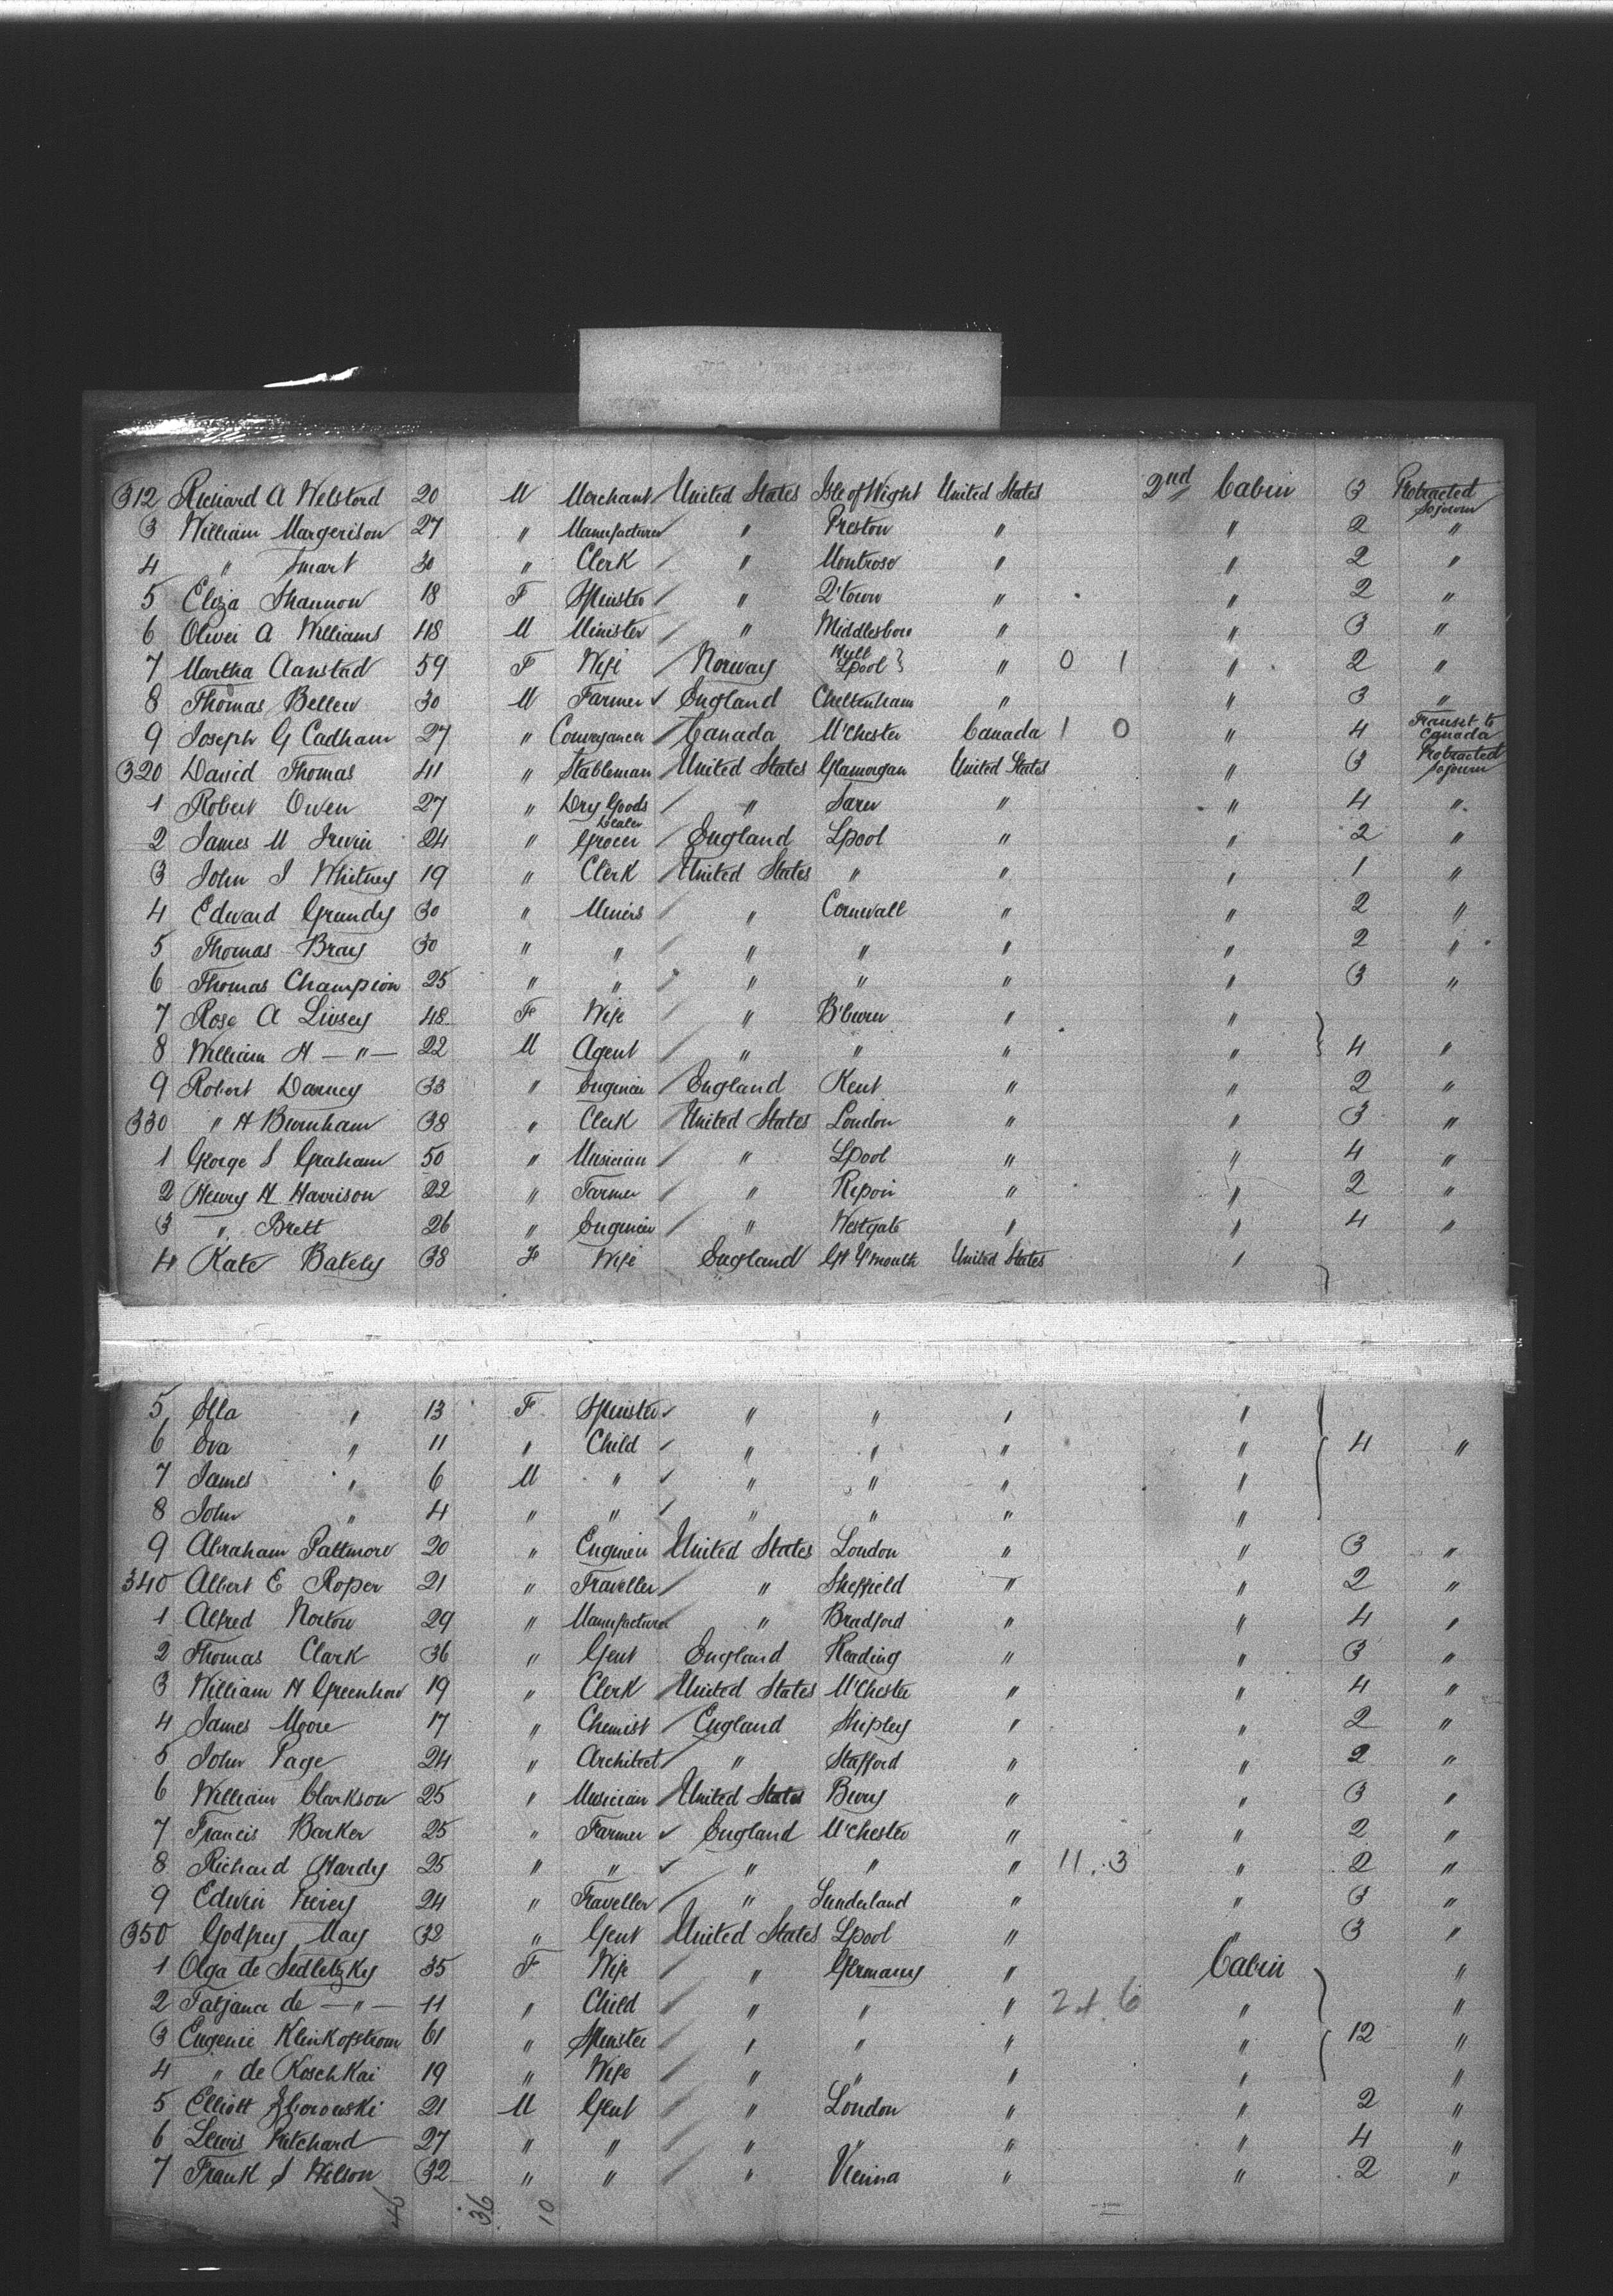 312 Richard A Welsford 20 M Merchant United States Isle of Wight United States 2nd Cabin 3 Protracted Sojourn
3 William Margerison 27 " Manufacturer " Preston " " 2 "
4 " Smart 30 " Clerk " Montrose " " 2 "
5 Eliza Shannon 18 F Spinster " Q'town " " 2 "
6 Oliver A Williams 48 M Minister " Middlesboro " " 3 "
7 Martha Aanstad 59 F Wife Norway Hull Lpool } " 0 1 " 2 "
8 Thomas Bellew 30 M Farmer England Cheltenham " " 3 "
9 Joseph G Cadham 27 " Conveyancer Canada M'Chester Canada 1 0 " 4 Transit to Canada
320 David Thomas 41 " Stableman United States Glamorgan United States " 3 Protracted Sojourn
1 Robert Owen 27 " Dry Goods Dealer " " " 4 "
2 James M Irwin 24 " Grocer England Lpool " " 2 "
3 John J Whitney 19 " Clerk United States " " " 1 "
4 Edward Grundy 30 " Miners " Cornwall " " 2 "
5 Thomas Bray 30 " " " " " " 2 "
6 Thomas Champion 25 " " " " " " 3 "
7 Rose A Livsey 48 F Wife " B'burn " "
8 William H — " — 22 M Agent " " " " } 4 "
9 Robert Darney 33 " Engineer England Kent " " 2 "
330 " H Burnham 38 " Clerk United States London " " 3 "
1 George S Graham 50 " Musician " Lpool " " 4 "
2 Henry H Harrison 22 " Farmer " Ripon " " 2 "
3 " Brett 26 " Engineer " Westgate " " 4 "
4 Kate Bakely 38 F Wife England Gt Y'mouth United States "
5 Ella " 13 F Spinster " " " "
6 Eva " 11 " Child " " " " 4 "
7 James " 6 M " " " " "
8 John " 4 " " " " " "
9 Abraham Pattmore 20 " Engineer United States London " " 3 "
340 Albert E Roper 21 " Traveller " Sheffield " " 2 "
1 Alfred Norton 29 " Manufacturer " Bradford " " 4 "
2 Thomas Clark 36 " Gent England Reading " " 3 "
3 William H Greenhow 19 " Clerk United States M'Chester " " 4 "
4 James Moore 17 " Chemist England Shipley " " 2 "
5 John Page 24 " Architect " Stafford " " 2 "
6 William Clarkson 25 " Musician United States Bury " " 3 "
7 Francis Barker 25 " Farmer England M'Chester " " 2 "
8 Richard Hardy 25 " " " " " 11 . 3 " 2 "
9 Edwin 24 " Traveller " Sunderland " " 3 "
350 Godfrey May 32 " Gent United States Lpool " " 3 "
1 Olga de Sedletzky 35 F Wife " Germany " Cabin "
2 Tatjana de — " — 11 " Child " " " 2 + 6 " "
3 Eugenie Klinkofstrom 61 " Spinster " " " " 12 "
4 " de Koschkai 19 " Wife " " " " "
5 Elliott Zborowski 21 M Gent " London " " 2 "
6 Lewis Pritchard 27 " " " " " " 4 "
7 Frank S Wilson 32 " " " Vienna " " 2 "
46 36 10